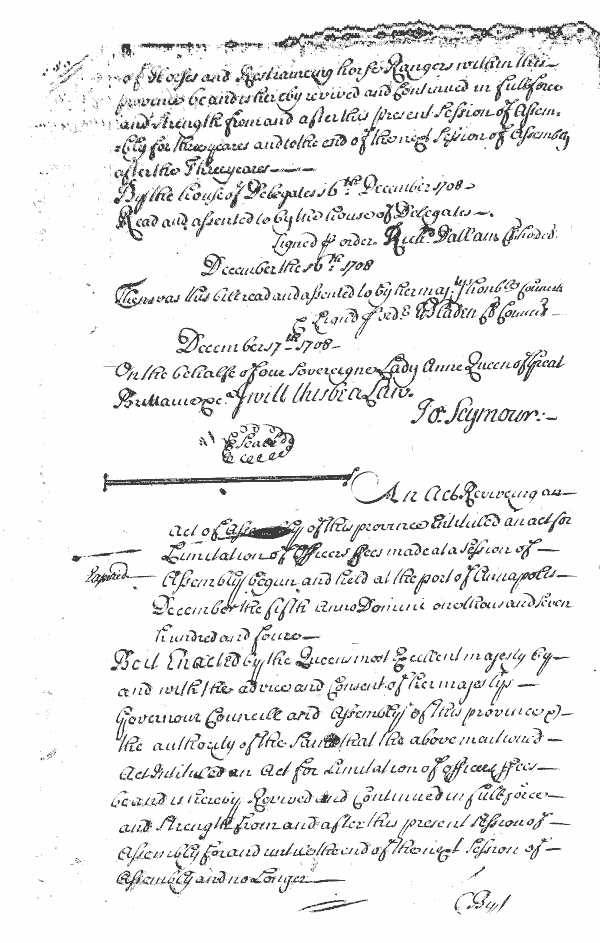 of Horses and Restraineing horse Rangers within this
province be and is hereby revived and Continued in full force
and strength from and after this present Session of Assem-
-bly for three yeares and to the end of the next Session of Assembly
after the Three yeares
By the house of Delegates 16th December 1708
Read and assented to by the house of Delegates
Signed p order Richd Dallam
December the 16th 1708
Then was this bill read and assented to by her majtys honble Councill
Signed p ordr WBladen Cl Council
December 17th 1708
On the behalfe of our Sovereigne Lady Anne Queen of Great
Brittaine &c. I will this be a Law.
Jo: Seymour:
Seale
An Act Reviveing an
act of Assembly of this province intituled an act for
Limitation of Officers ffees made at a Session of
Expired Assembly begun and held at the port of Annapolis
December the fifth Anno Domini one thousand seven
hundred and foure
Be it Enacted by the Queens most Excellent majesty by
and with the advice and Consent of her majestys
Governour Councill and Assembly of this province &
the authority of the same that the above mentioned
Act Intituled an Act for Limitation of officers ffees
be and is hereby Revived and Continued in full force
and Strength from and after this present Session of
Assembly for and untill the end of the next Session of
Assembly and no Longer
By